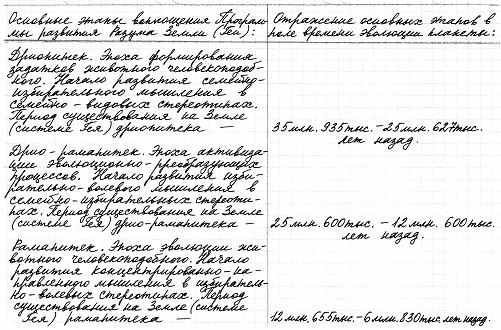 Основные этапы воплощения Програм-
мы развития Разума Земли (Геи):
Дриопитек. Эпоха формирования
задатков животного человекоподоб-
ного. Начало развития семейно-
избирательного мышления в
семейно-видовых стереотипах.
Период существования на Земле
(системе Гея) дриопитека —
Дрио-рамапитек. Эпоха активиза-
ции эволюционно-преобразующих
процессов. Начало развития изби-
рательно-волевого мышления в
семейно-избирательных стереоти-
пах. Период существования на Земле
(системе Гея) дрио-рамапитека —
Рамапитек. Эпоха эволюции жи-
вотного человекоподобного. Начало
развития концентрированно-на-
правленного мышления в избиратель-
но-волевых стереотипах. Период
существования на Земле (системе
Гея) рамапитека —
Отражение основных этапов в
поле времени эволюции планеты:
35 млн. 935 тыс. – 25 млн. 627 тыс.
лет назад.
25 млн. 600 тыс. – 12 млн. 600 тыс.
лет назад.
12 млн. 655 тыс. – 6 млн. 830 тыс. лет назад.